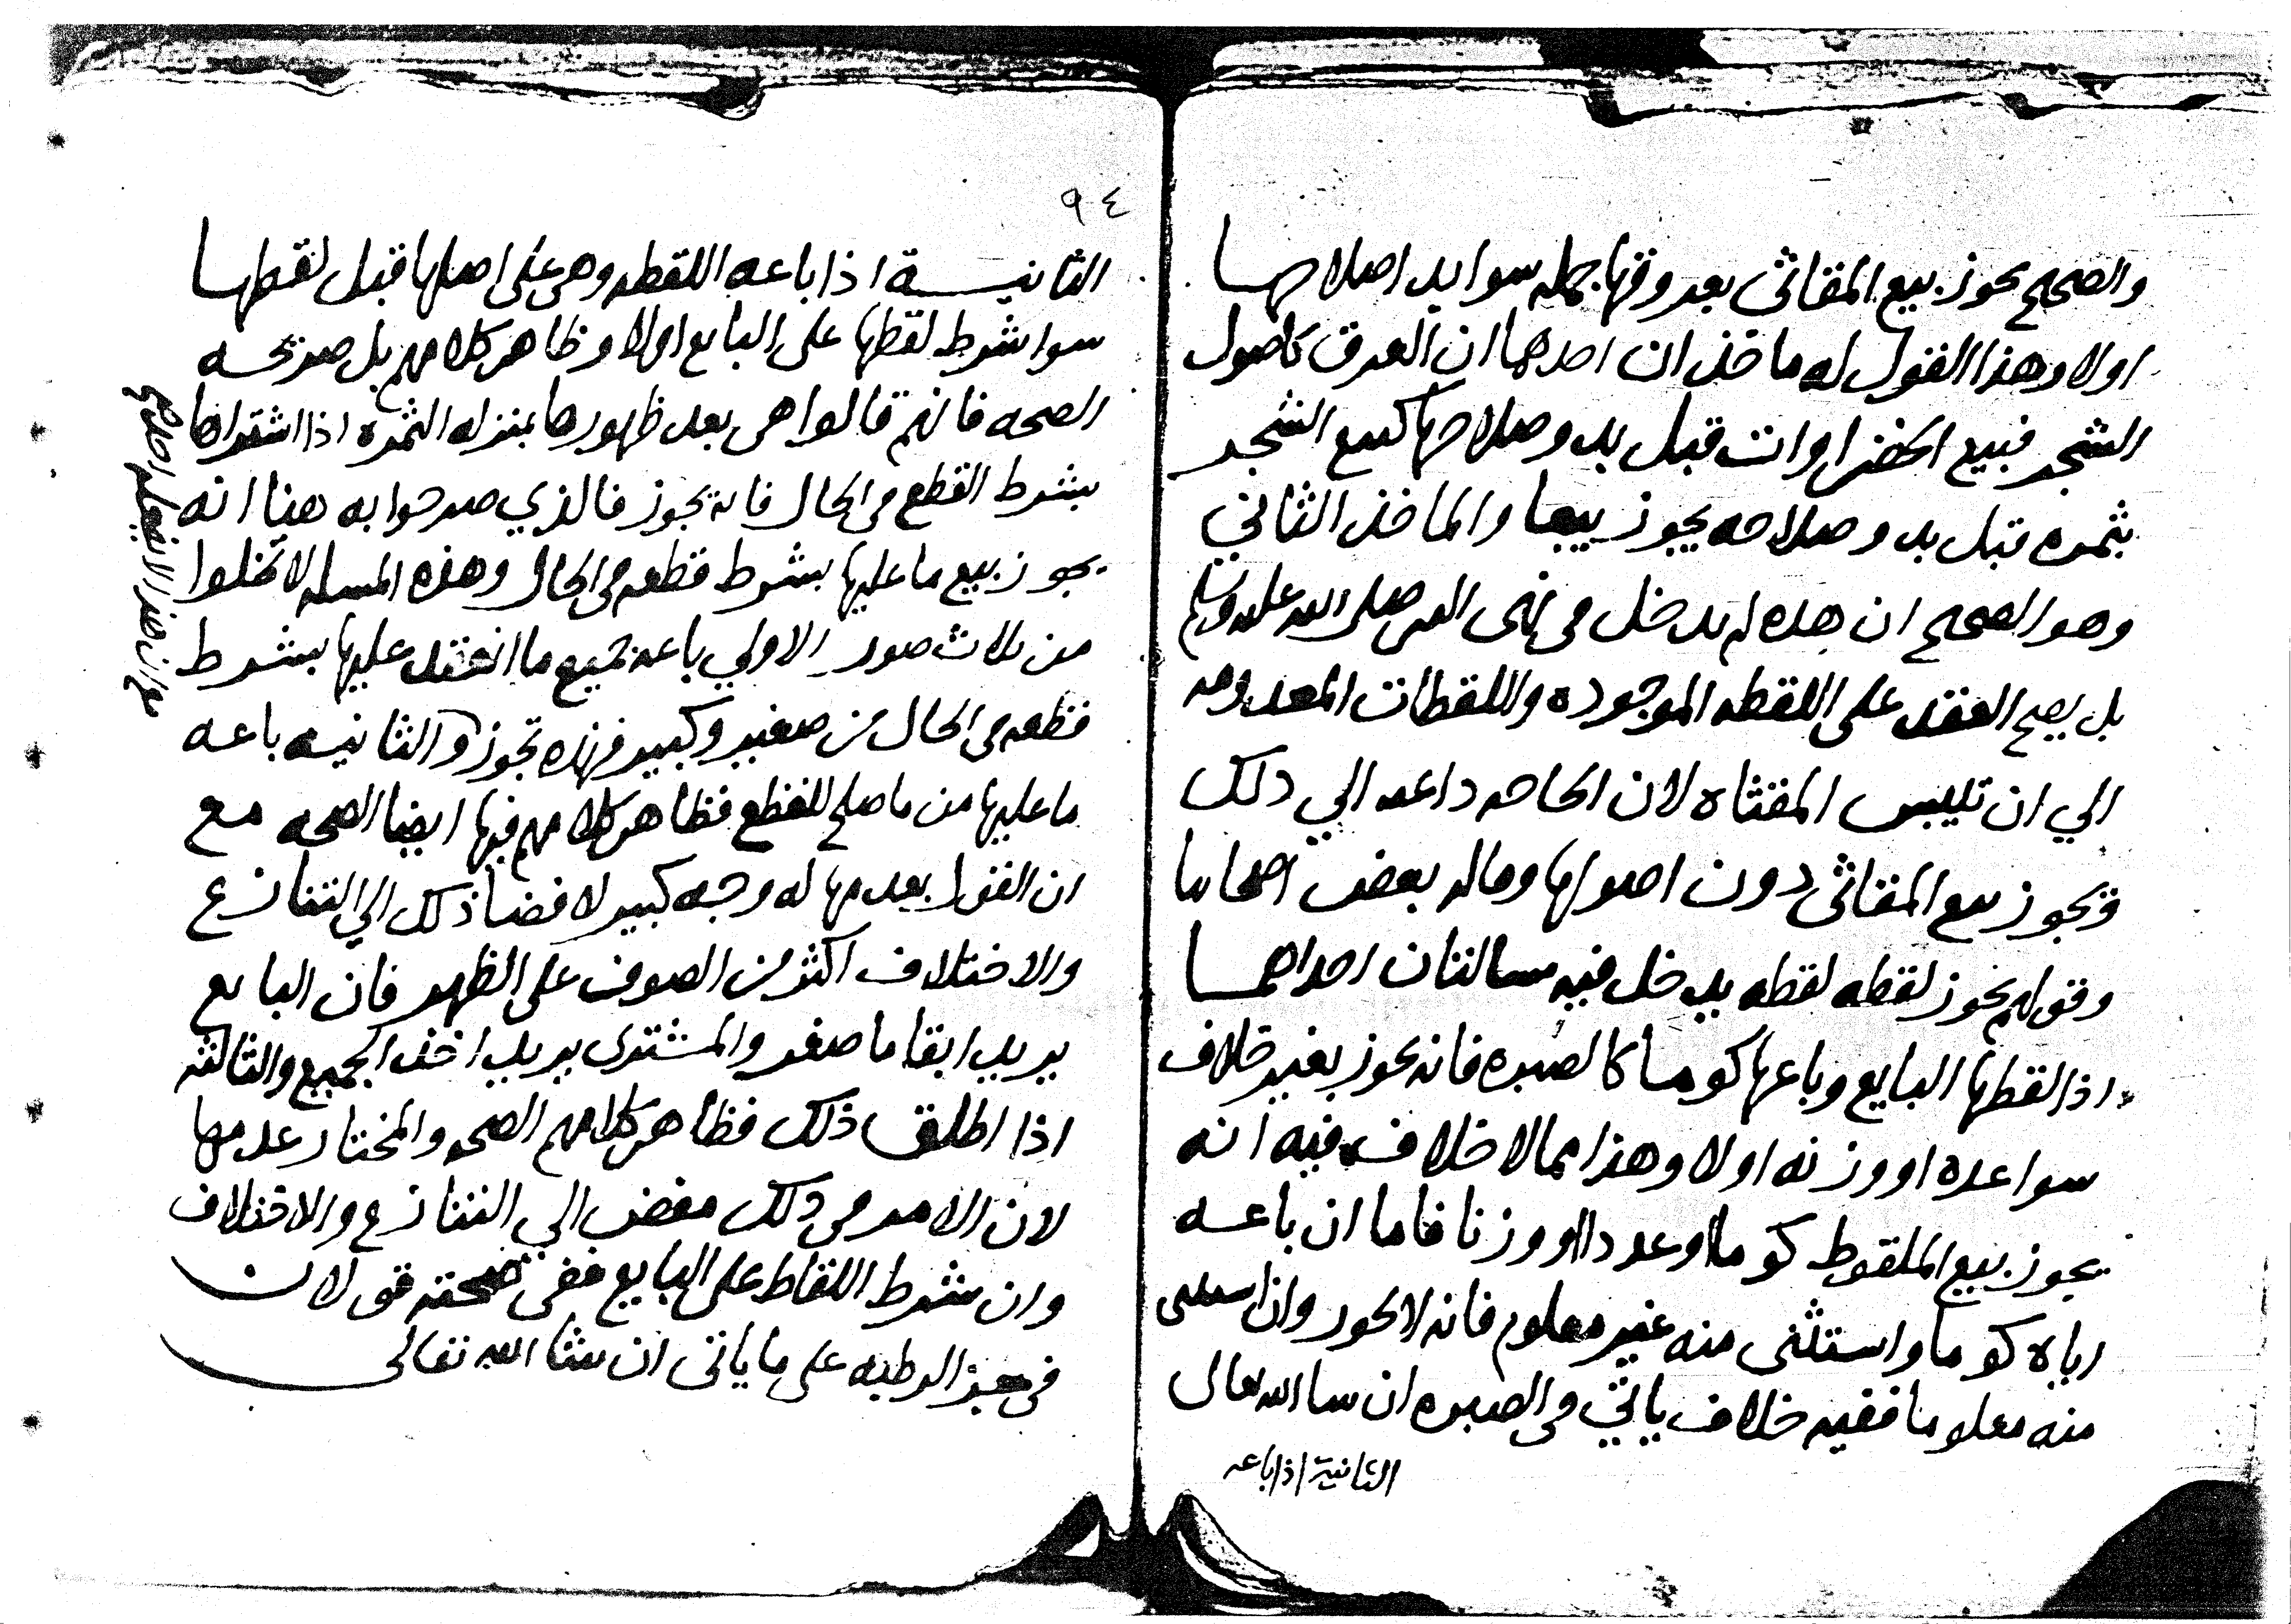 والصحيح يجوز بيع المقاثي بعروقها جمله سوا بدا صلاحها
اولا وهذا القول له ماخذان احدهما ان العروق كاصول
الشجر فبيع الخضراوات قبل بدو صلاحها كبيع الشجر
بثمره قبل بدو صلاحه يجوز بيعا والماخذ الثاني
وهو الصحيح ان هذه لم تدخل في نهي النبي صلى الله عليه وسلم
بل يصح العقد على اللقطه الموجوده واللقطات المعدومه
الي ان تيبس المقثاه لان الحاجه داعيه الي ذلك
ويجوز بيع المقاثي دون اصولها وقاله بعض اصحابنا
وقولهم يجوز لقطه لقطه يدخل فيه مسالتان احداهما
اذا لقطها البايع وباعها كوما كالصبره فانه يجوز بغير خلاف
سوا عده او وزنه اولا وهذا مما لا خلاف فيه انه
يجوز بيع الملقوط كوما او عددا او وزنا فاما ان باعه
اياه كوما واستثنى منه غير معلوم فانه لا يجوز وان استثنى
منه معلوما ففيه خلاف ياتي في الصبره ان شا الله تعالى
الثانية اذا باعه
٩٤
الثانيــة اذا باعه اللقطه وهي على اصلها قبل لقطها
سوا شرط لقطها على البايع اولا وظاهر كلامهم بل صريحه
الصحه فانهم قالوا هي بعد ظهورها بمنزله الثمره اذا اشتراها
بشرط القطع في الحال فانه يجوز فالذي صرحوا به هنا انه
يجوز بيع ما عليها بشرط قطعه في الحال وهذه المساله لا تخلوا
من ثلاث صور الاولي باعه جميع ما انعقد عليها بشرط
قطعه في الحال من صغير وكبير فهذه تجوز والثانيه باعه
ما عليها من ما صلح للقطع فظاهر كلامهم فيها ايضا الصحه مع
ان القول بعدمها له وجه كبير لافضا ذلك الي التنازع
والاختلاف اكثر من الصوف على الظهر فان البايع
يريد ابقا ما صغر والمشتري يريد اخذ الجميع والثالثه
اذا اطلق ذلك فظاهر كلامهم الصحه والمختار عدمها
لان الامر في ذلك مفض الي التنازع والاختلاف
وان شرط اللقاط على البايع ففي صحته قولان
في جز الرطبه على ما ياتي ان شا الله تعالى